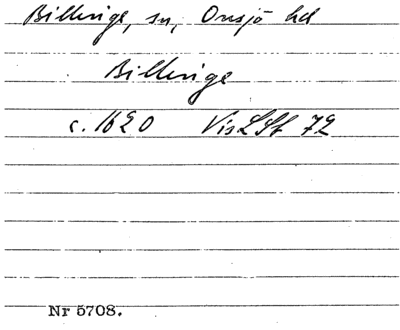 Billinge, sn, Onsjö hd
Billinge
c. 1620 VisLSt 72
Nr 5708.